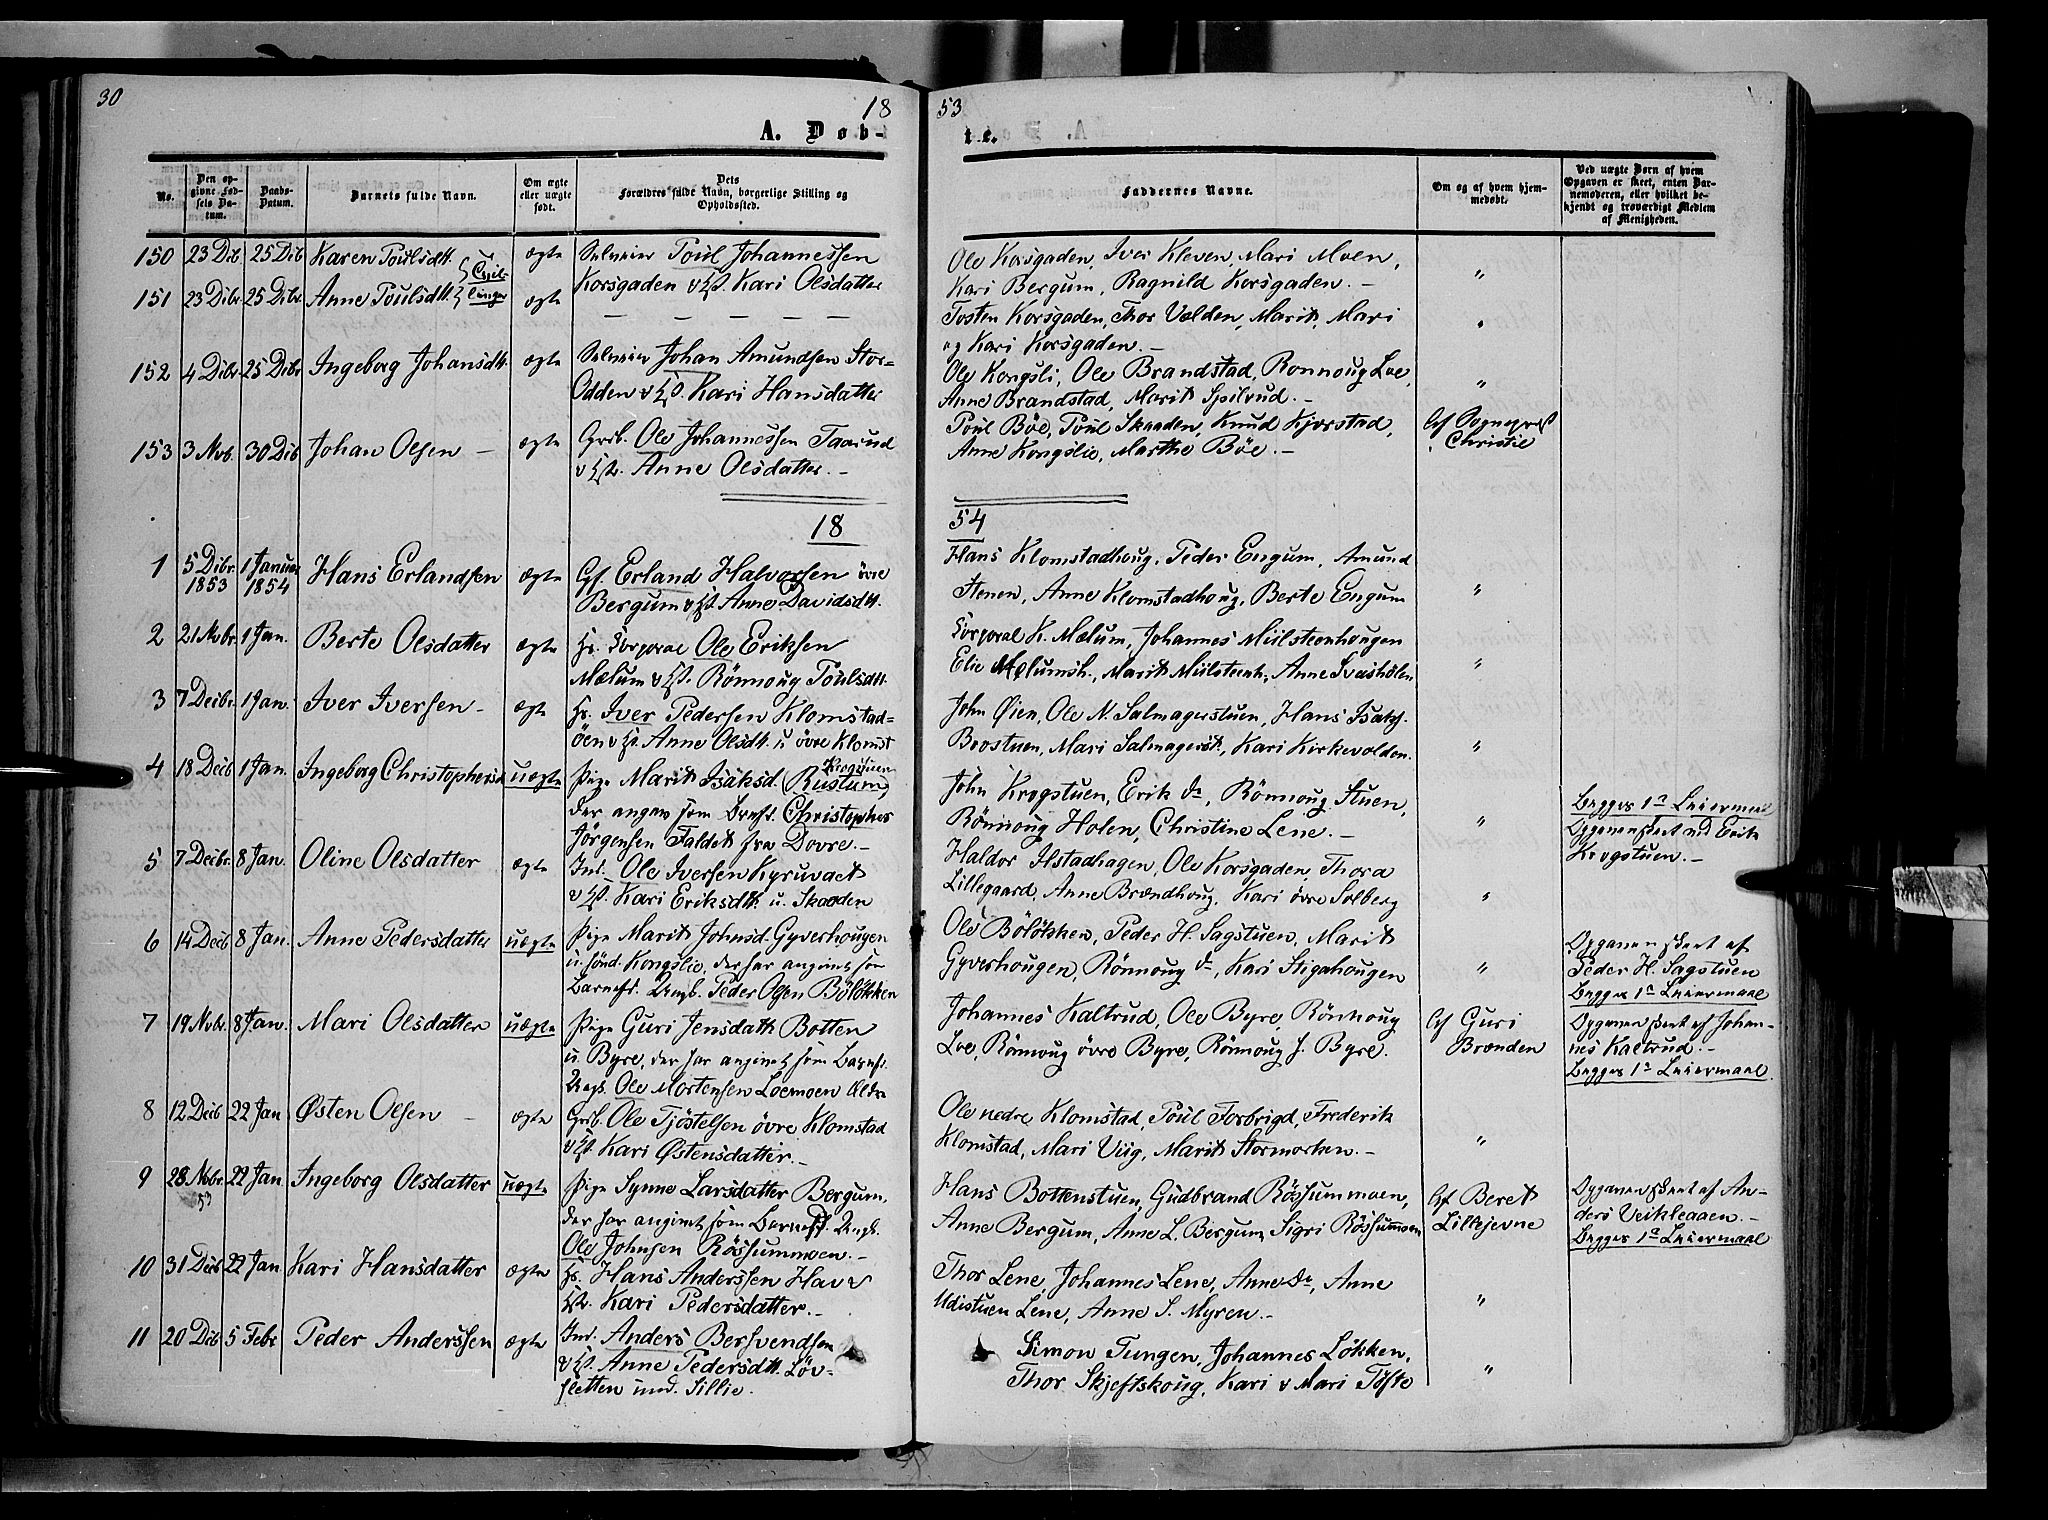 30
18
53
A. Døb-
te.
No.
Den op-
givne Fød-
sels Da-
tum.
Daabs-
Datum.
Barnets fulde Navn.
Om ægte
eller uægte
født.
Dets
Forældres fulde Navn, borgerlige Stilling og
Opholdssted.
Faddernes Navne.
Om og af hvem hjem-
medøbt.
Ved uægte Børn af hvem
Opgaven er skeet, enten Bar-
nemoderen, eller hvilket be-
kjendt og troværdigt Medlem
af Menigheden.
150 23 Dbr. 25 Dbr Karen Poulsdtt. ægte Selveier Poul Johannessen
Ole Korsgaden, Iver Kleven, Mari Moen,
Korsgaden & Kari Olsdatter
Kari Bergum, Ragnild Korsgaden. – "
151 23 Dbr. 25 Dbr. Anne Poulsdtt. ægte — — — — —
Tosten Korsgaden, Thor Volden, Marit, Mari
og Kari Korsgaden. –
152 4 Dbr. 25 Dbr. Ingeborg Johansdtt. ægte Selveier Johan Amundsen Stor-
Odden & Kari Hansdatter
Ole Kongsli, Ole Brandstad, Ronnoug Loe,
Anne Brandstad, Marit Spilrud. – "
153 3 Nvb. 30 Dbr Johan Olsen – ægte Grb. Ole Johannessen Taarud
& Anne Olsdatter. –
Poul Böe, Poul Skaaden, Knud Kjorstad,
Anne Kongslie, Marthe Böe. –
af Sognepræst
Christie
18
54
1 5 Dbr. 1853 1 Januar 1854 Hans Erlandsen ægte Gf. Erland Halvorsen övre
Bergum & Anne Davidsdtt.
Hans Klomstadhoug, Peder Engum, Amund
Stenen, Anne Klomstadhoug, Berte Engum "
2 21 Nvbr. 1 Jan. Berte Olsdatter ægte Hs. Corporal Ole Eriksen
Mælum & Rönnoug Poulsdtt.
Corporal K. Mælum, Johannes Miilsteenhougen
Elie Mælumsh., Marit Miilsteenh., Anne Svashölen "
3 7 Decbr. 1 Jan. Iver Iversen – ægte Hs. Iver Pedersen Klomstad-
öen & Anne Olsdtt. u. övre Klomst
John Øien, Ole N. Salmagerstuen, Hans Isaks.
Brostuen, Mari Salmagerst., Kari Kirkevolden. "
4 18 Decb 1 Jan. Ingeborg Christophersd. uægte Pige Marit Isaksd. (Rustum) Krogstuen
der angav som Barnf. Christopher
Jörgensen Faldet fra Dovre. –
John Krogstuen, Erik do, Rönnoug Stuen,
Rönnoug Holen, Christine Lene. – "
Begges 1ste Leiermaal
Opgaven skeet ved Erik
Krogstuen. –
5 7 Decbr. 8 Jan. Oline Olsdatter ægte Ind. Ole Iversen Kyruvaet
& Kari Eriksdtt. u. Skaaden
Haldor Ilstadhagen, Ole Korsgaden, Thora
Lillegaard, Anne Brændhoug, Kari övre Solberg "
6 14 Decb 8 Jan. Anne Pedersdatter uægte Pige Marit Johnsd. Gyverhougen
u. sönd. Kongslie, der har angivet som
Barnef. Ungk. Peder Olsen Bölökken
Ole Bölökken, Peder H. Sagstuen, Marit
Gyverhougen, Rönnoug do, Kari Stigahougen "
Opgaven skeet af
Peder H. Sagstuen
Begges 1ste Leiermaal
7 19 Nvbr. 8 Jan. Mari Olsdatter uægte Pige Guri Jensdatt. Botten
u. Byre, der har angivet som Barnef.
Ungk. Ole Mortensen Loemoen Ældre
Johannes Kaltrud, Ole Byre, Rönnoug
Loe, Rönnoug övre Byre, Rönnoug s. Byre.
af Guri
Brænden
Opgaven skeet af Johan-
nes Kaltrud. –
Begges 1ste Leiermaal
8 12 Decb 22 Jan Østen Olsen – ægte Grb. Ole Tjöstelsen övre Klomstad
& Kari Østensdatter. –
Ole nedre Klomstad, Poul Forbrigd, Frederik
Klomstad, Mari Viig, Marit Stormorken. – "
9 28 Nvbr. 53 22 Jan Ingeborg Olsdatter uægte Pige Synne Larsdatter Bergum,
der har angivet som Barnef. Ungk.
Ole Johnsen Rössummoen. –
Hans Bottenstuen, Gudbrand Rössummoen,
Anne Bergum, Anne L. Bergum, Sigri Rössummoen
af Beret
Lillejevne
Opgaven skeet af An-
ders Veikleaaen. –
Begges 1ste Leiermaal
10 31 Decb 22 Jan Kari Hansdatter ægte Hs. Hans Anderssen Hav &
Kari Pedersdatter. –
Thor Lene, Johannes Lene, Anne do, Anne
Udistuen Lene, Anne S. Myren. – "
11 20 Dcb 5 Febr Peder Anderssen ægte Ind. Anders Bersvendsen
& Anne Pedersdtt. Löv-
sletten und. Lillie.
Simon Tungen, Johannes Lökken,
Thor Skjeftskoug, Kari & Mari Töfte "